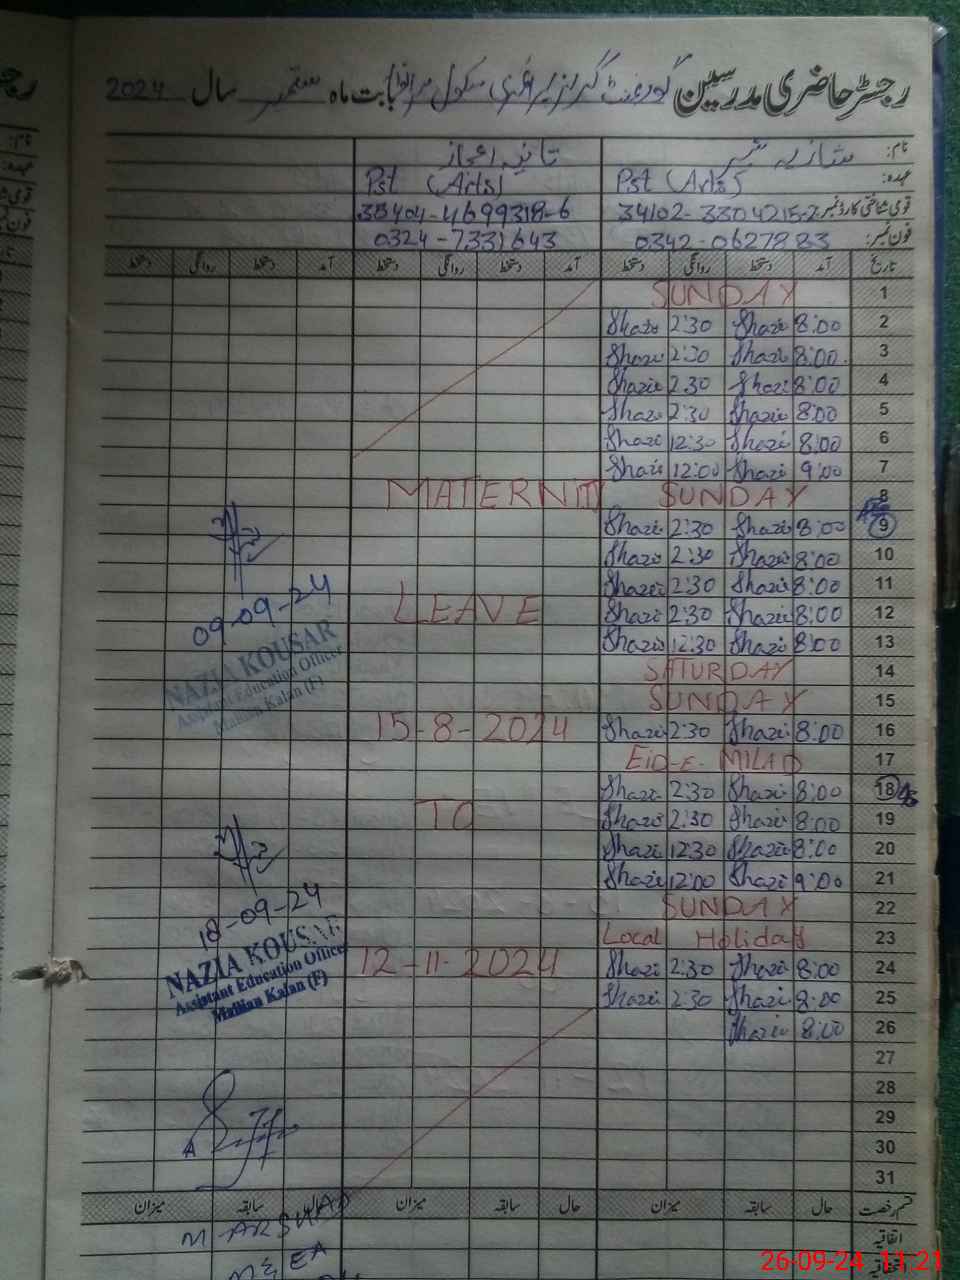 رجسٹر حاضری مدرسین گورنمنٹ گرلز پرائمری سکول بابت ماہ ستمبر سال 2024
نام: شازیہ تانیہ اعجاز
عہدہ: Pst (Arts) Pst (Arts)
قومی شناختی کارڈ نمبر 34102-3304215-2 38404-4699318-6
فون نمبر: 0342-0627883 0324-7331643
تاریخ آمد دستخط روانگی دستخط آمد دستخط روانگی دستخط آمد دستخط روانگی دستخط
1 SUNDAY
2 8:00 Shazi 2:30 Shazi
3 8:00 Shazi 2:30 Shazi
4 8:00 Shazi 2:30 Shazi
5 8:00 Shazi 2:30 Shazi
6 8:00 Shazi 12:30 Shazi
7 9:00 Shazi 12:00 Shazi
8 SUNDAY MATERNITY
9 8:00 Shazi 2:30 Shazi
10 8:00 Shazi 2:30 Shazi
11 8:00 Shazi 2:30 Shazi
12 8:00 Shazi 2:30 Shazi LEAVE
13 8:00 Shazi 12:30 Shazi
09-09-24
NAZIA KOUSAR
Assistant Education Officer
Mallian Kalan (F)
14 SATURDAY
15 SUNDAY
16 8:00 Shazi 2:30 Shazi 15-8-2024
17 EID-E-MILAD
18 8:00 Shazi 2:30 Shazi
19 8:00 Shazi 2:30 Shazi TO
20 8:00 Shazi 12:30 Shazi
21 9:00 Shazi 12:00 Shazi
22 SUNDAY
23 Local Holiday
24 8:00 Shazi 2:30 Shazi 12-11-2024
25 8:00 Shazi 2:30 Shazi
26 8:00 Shazi
18-09-24
NAZIA KOUSAR
Assistant Education Officer
Mallian Kalan (F)
27
28
29
30
31
قسم رخصت حال سابقہ میزان حال سابقہ میزان حال سابقہ میزان
اتفاقیہ
M ARSHAD
MEA
26-09-24 11:21